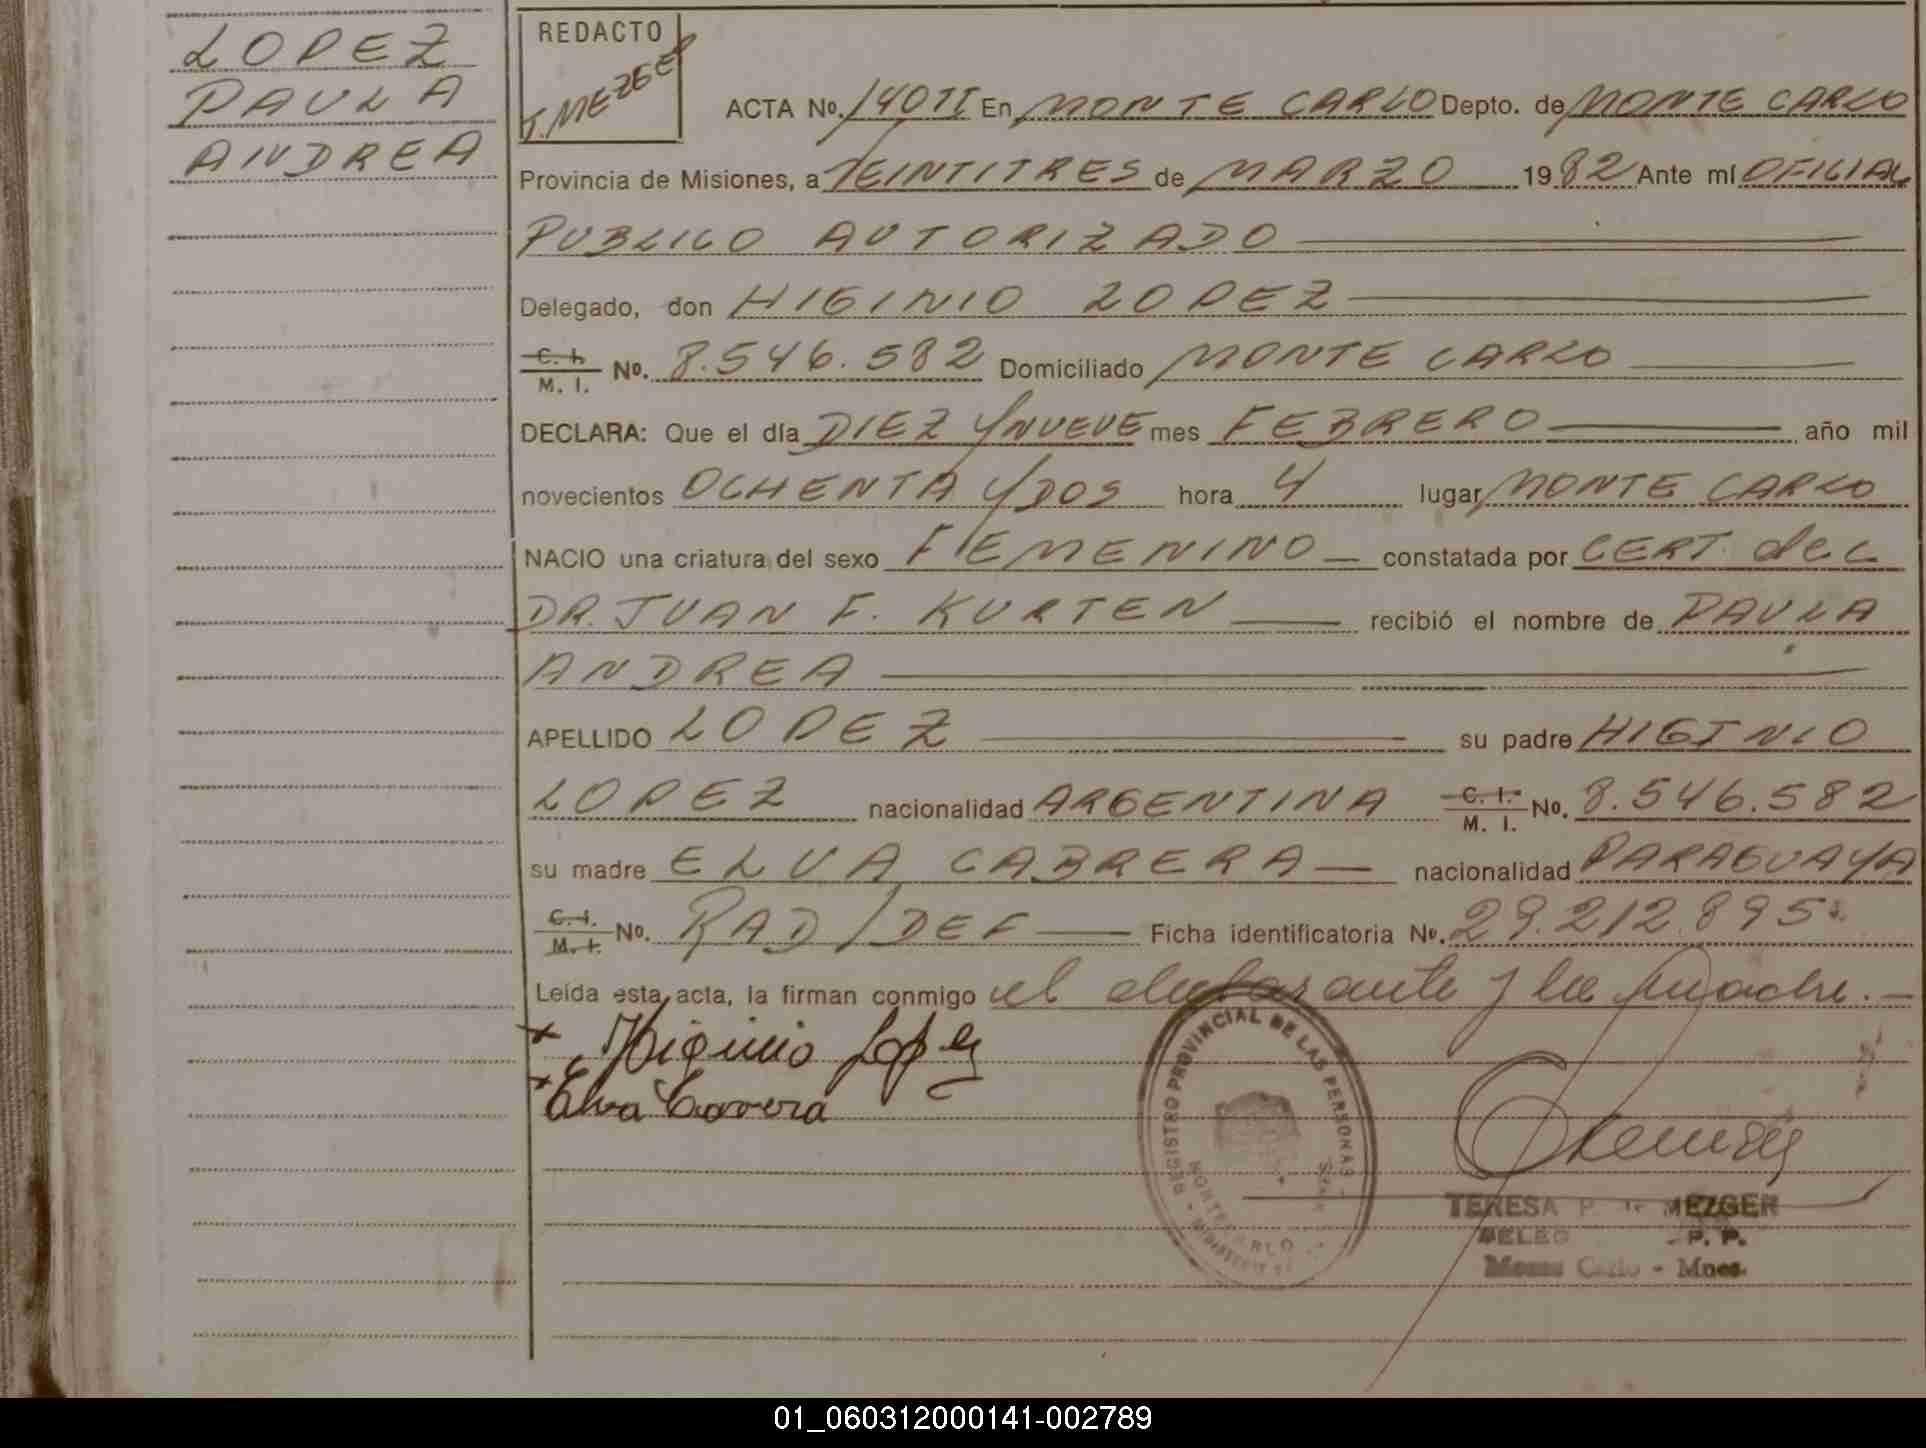 LOPEZ
PAULA
ANDREA
REDACTO
T. MEZGER
ACTA No. 140 TI En MONTE CARLO Depto. de MONTE CARLO
Provincia de Misiones, a VEINTITRES de MARZO 1982 Ante mí OFICIAL
PUBLICO AUTORIZADO
Delegado, don HIGINIO LOPEZ
C. I. / M. I. No. 8.546.582 Domiciliado MONTE CARLO
DECLARA: Que el día DIEZ Y NUEVE mes FEBRERO año mil
novecientos OCHENTA Y DOS hora 4 lugar MONTE CARLO
NACIO una criatura del sexo FEMENINO constatada por CERT. del
DR. JUAN F. KURTEN recibió el nombre de PAULA
ANDREA
APELLIDO LOPEZ su padre HIGINIO
LOPEZ nacionalidad ARGENTINA C. I. / M. I. No. 8.546.582
su madre ELVA CABRERA nacionalidad PARAGUAYA
C. I. / M. I. No. RAD/DEF Ficha identificatoria No. 29.212.895
Leída esta acta, la firman conmigo el declarante y la madre.
x Higinio Lopez
x Elva Cavrera
REGISTRO PROVINCIAL DE LAS PERSONAS
MONTECARLO
TERESA P. de MEZGER
DELEG P. P.
Monte Carlo - Mnes.
01_060312000141-002789